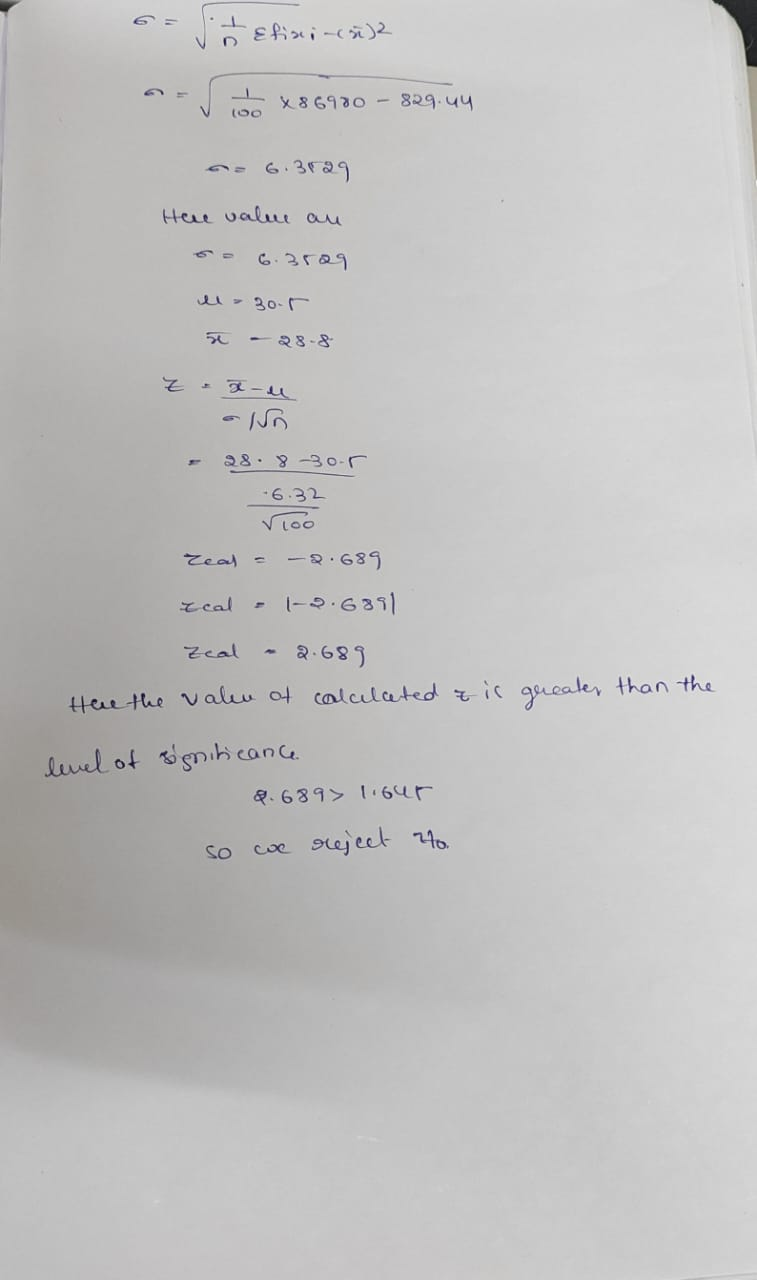 σ = √ 1/n Σfixi - (x̄)2
σ = √ 1/100 × 86980 - 829.44
σ = 6.3529
Here value are
σ = 6.3529
μ = 30.5
x̄ - 28.8
z = x̄-μ / σ/√n
= 28.8-30.5 / 6.32/√100
zcal = -2.689
zcal = |-2.689|
zcal = 2.689
Here the value of calculated z is greater than the
level of significance.
2.689 > 1.645
so we reject H0.